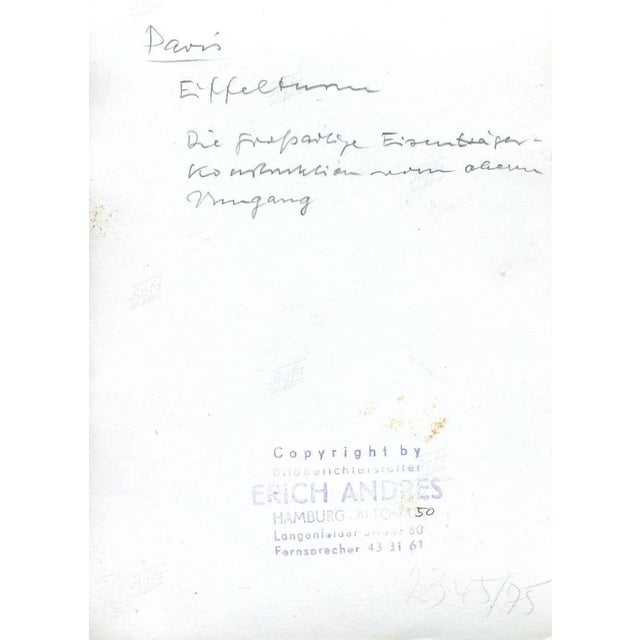 Paris
Eiffelturm
Die großartige Eisenträger-
Konstruktion vom oberen
Umgang
Agfa
Agfa
Copyright by
Bildberichterstatter
ERICH ANDRES
HAMBURG-ALTONA 50
Langenfelder Straße 60
Fernsprecher 43 31 61
Agfa
2345/75